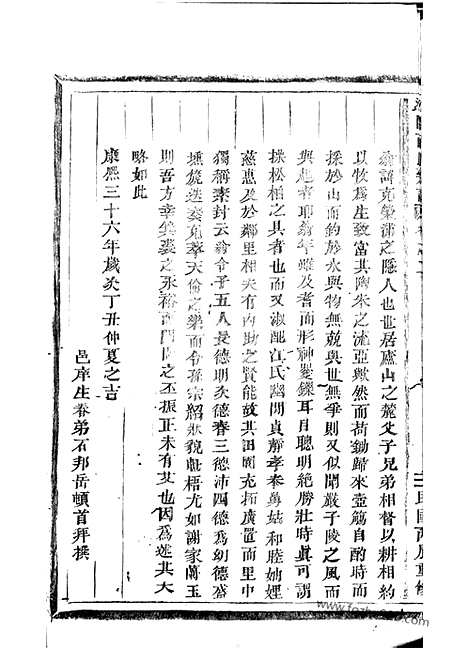 翁諱克敬湖之隱人也世居廬山之麓父子兄弟相督以耕相約
以牧為生致富其陶朱之流亞歟然而荷鋤歸來壺觴自酌時而
採於山而釣於水與物無競與世無爭則又似聞嚴子陵之風而
與起者耶翁年雖及耆而形神矍鑠耳目聰明絕勝壯時真可謂
操松柏之具者也而又淑配江氏幽閒貞靜孝奉舅姑和睦妯娌
慈惠及於鄰里相夫有內助之賢能故其田園充拓廣置而里中
獨稱素封云翁令子五人長德明次德春三德沛四德為幼德盛
壎篪迭奏克享天倫之樂而令孫宗紹狀貌魁梧尤如謝家蘭玉
則吾方幸箕裘之永裕而門閭之丕振正未有艾也因為述其大
略如此
康熙三十六年歲次丁丑仲夏之吉
邑庠生眷弟石邦岳頓首拜撰
民國丙辰重修